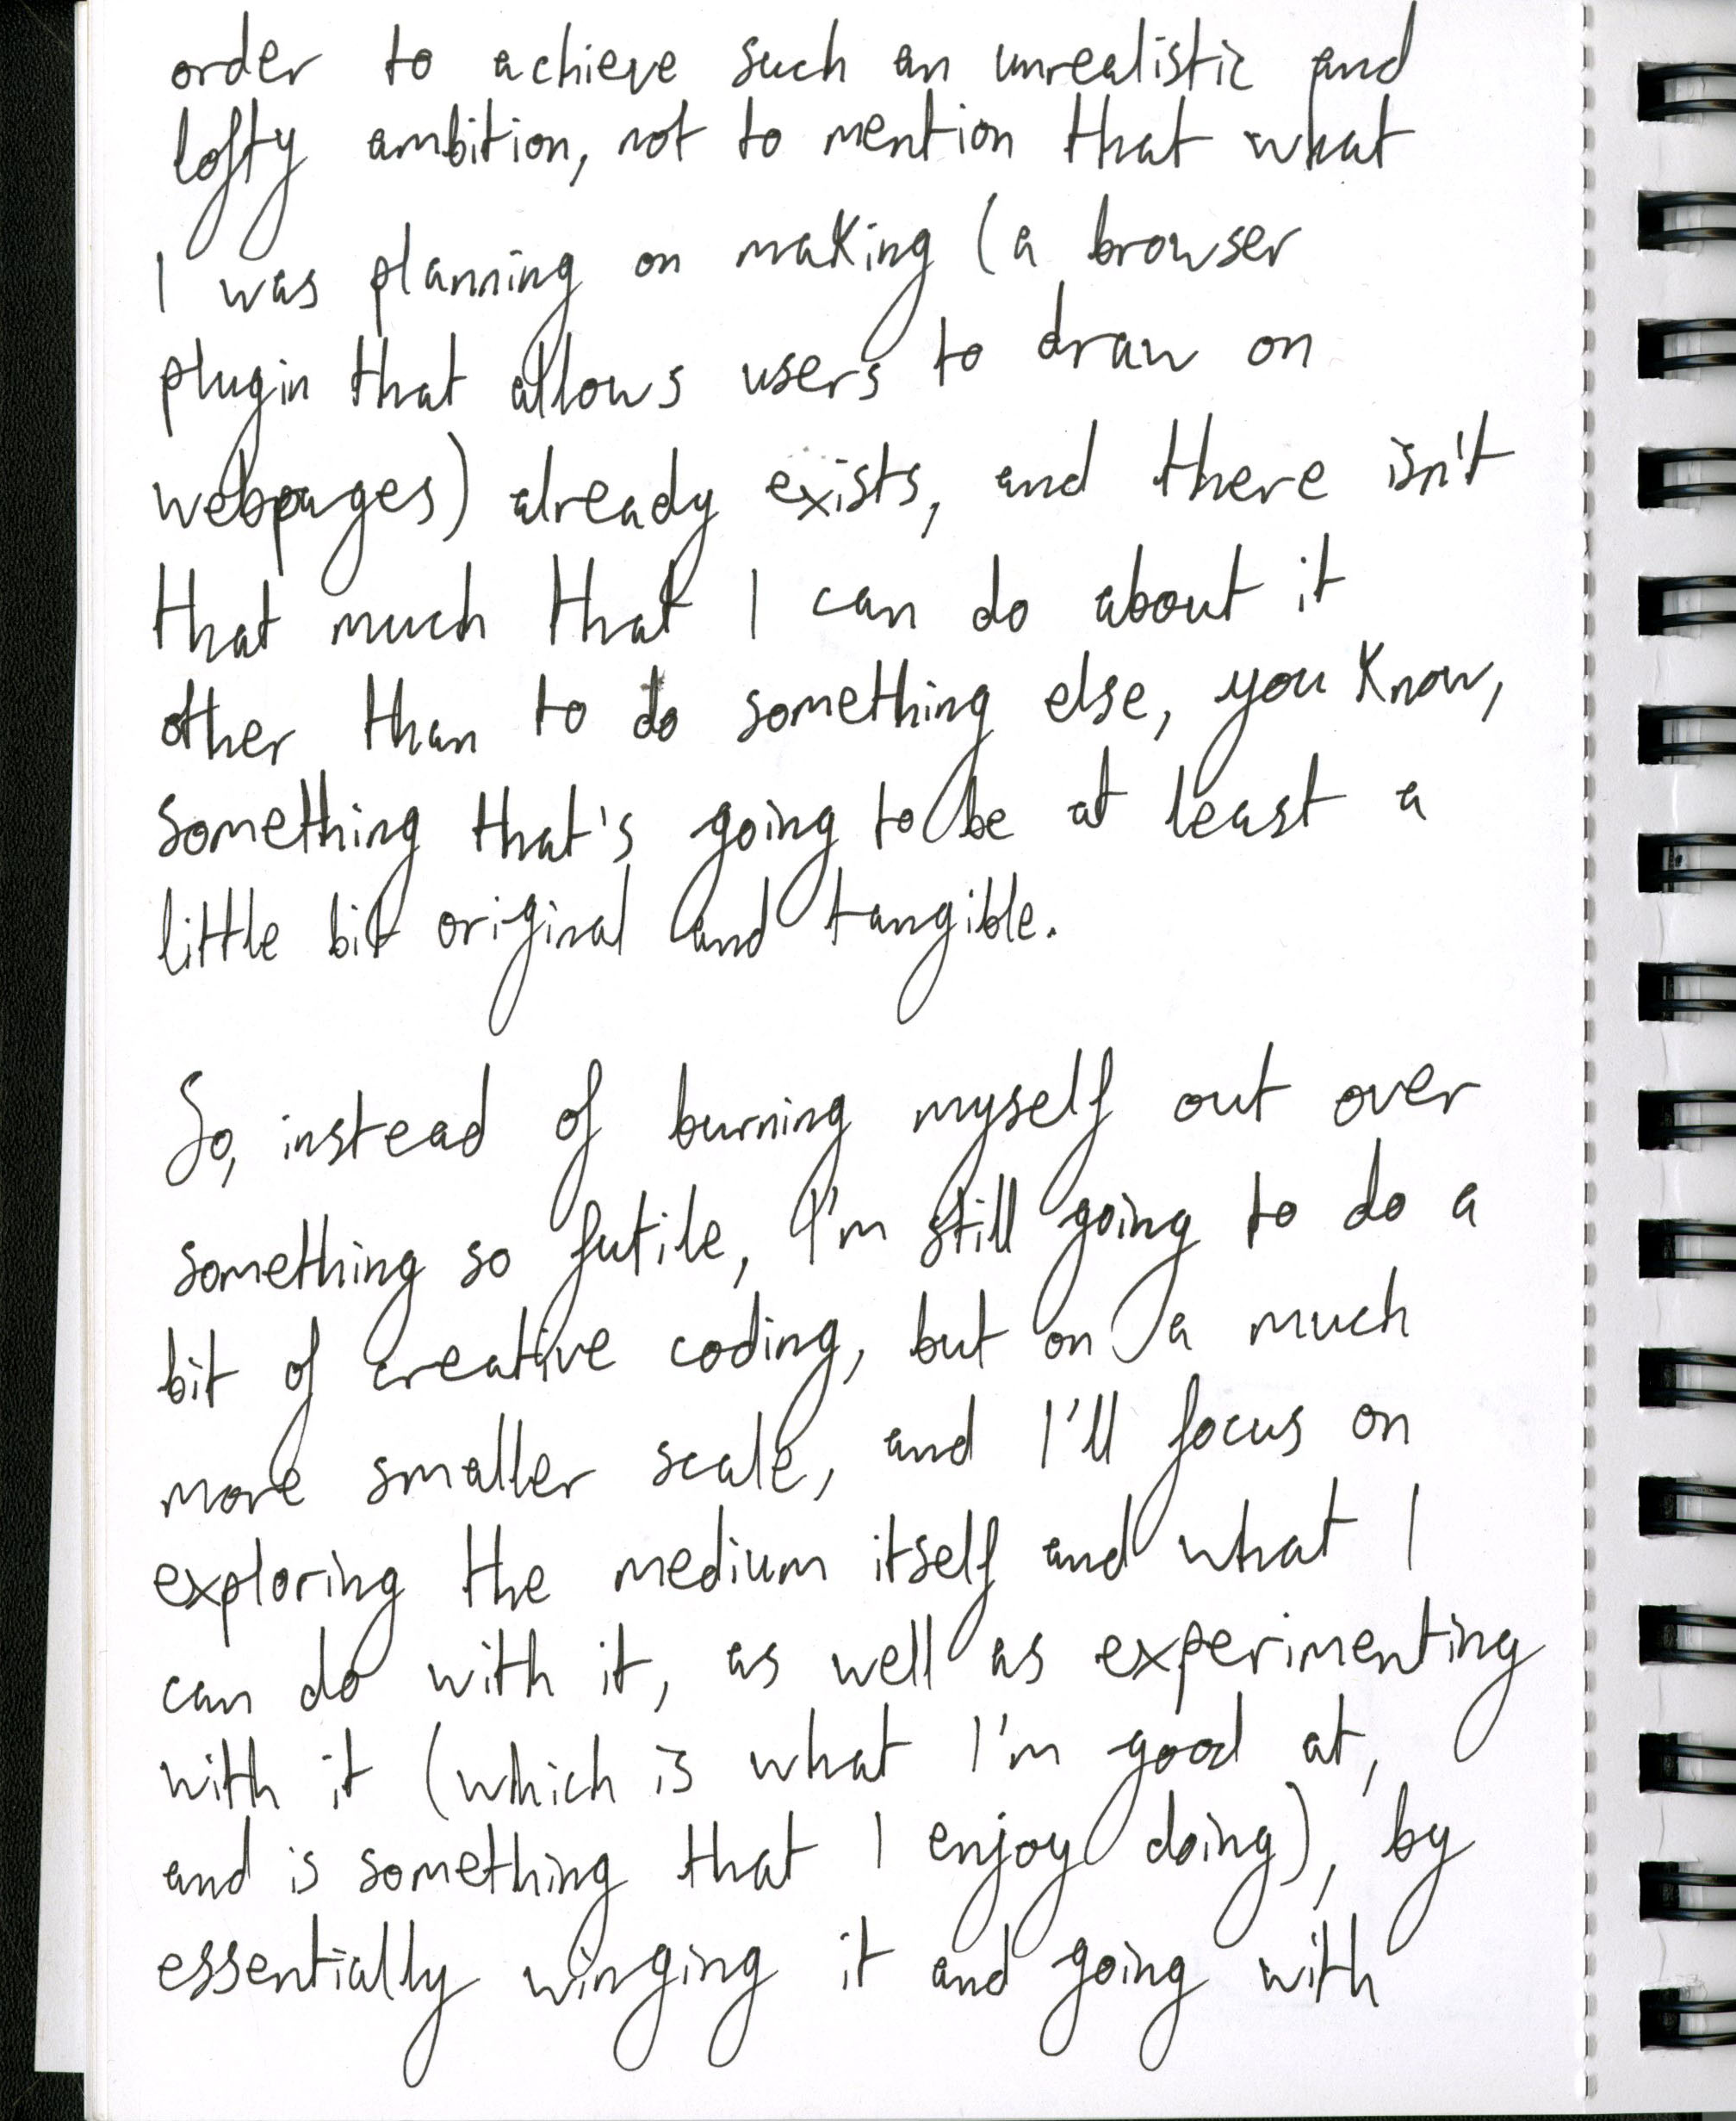 order to achieve such an unrealistic and
lofty ambition, not to mention that what
I was planning on making (a browser
plugin that allows users to draw on
webpages) already exists, and there isn't
that much that I can do about it
other than to do something else, you know,
something that's going to be at least a
little bit original and tangible.
So, instead of burning myself out over
something so futile, I'm still going to do a
bit of creative coding, but on a much
more smaller scale, and I'll focus on
exploring the medium itself and what I
can do with it, as well as experimenting
with it (which is what I'm good at,
and is something that I enjoy doing), by
essentially winging it and going with